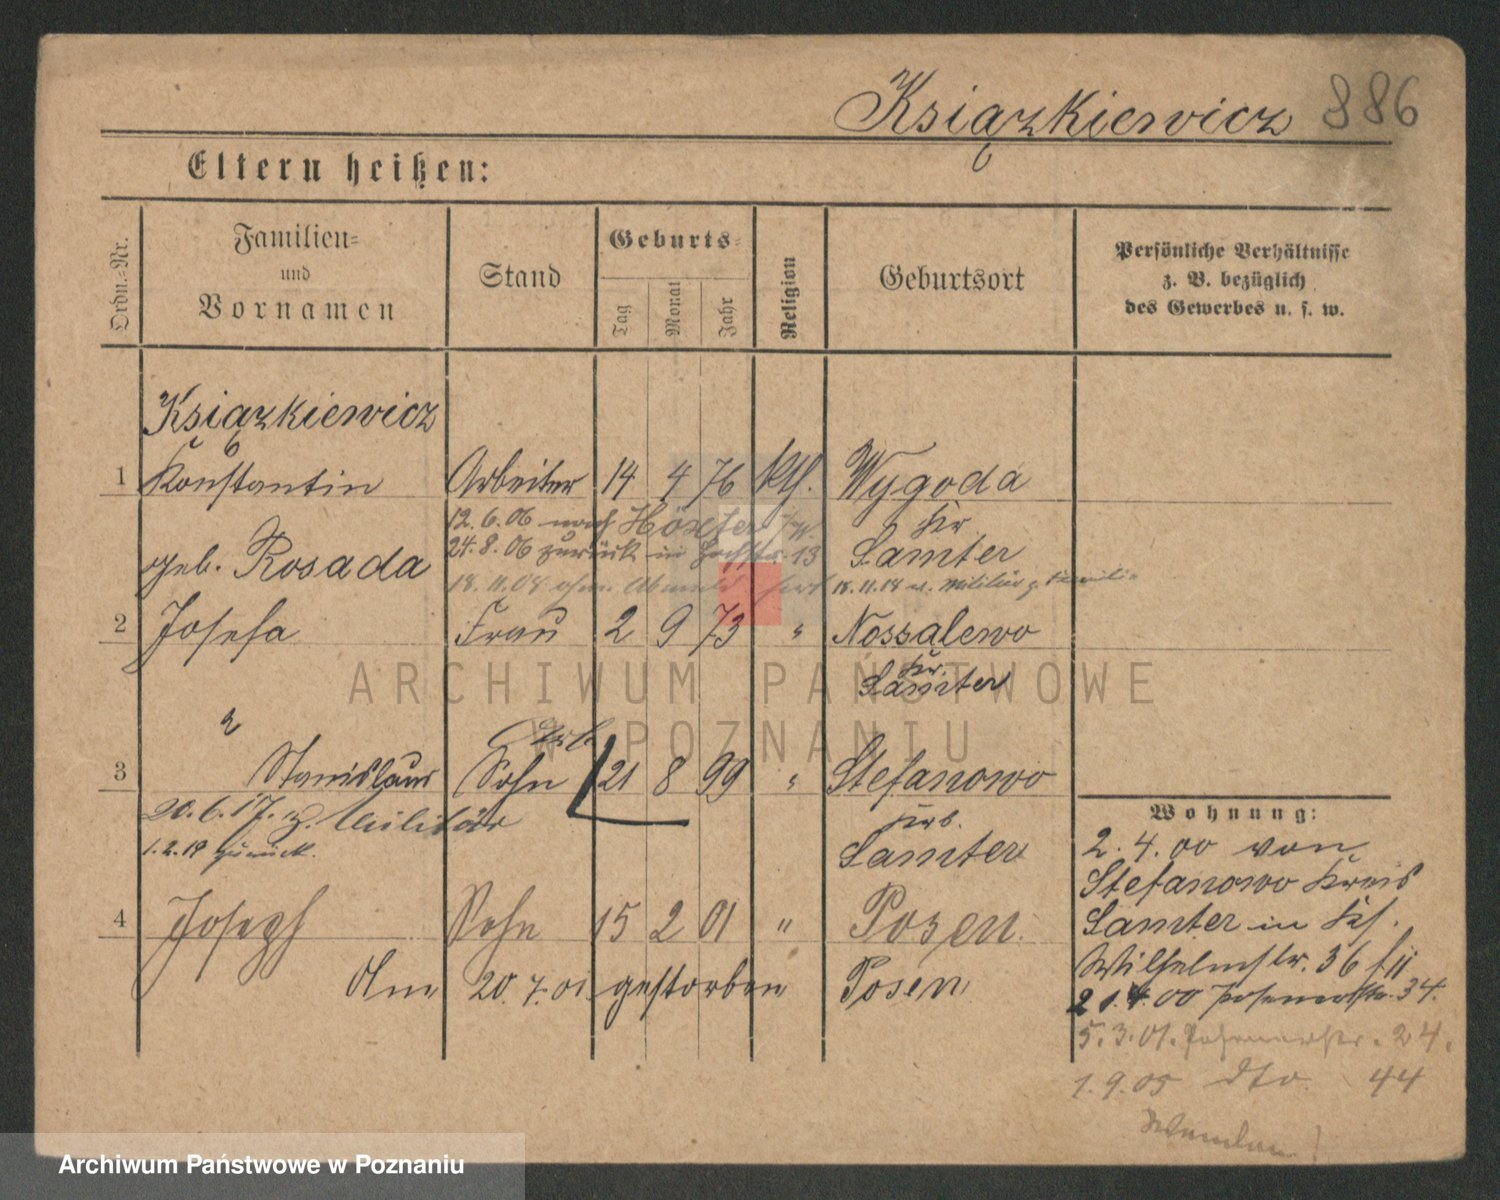 Książkiewicz 886
Eltern heißen:
Ordn.-Nr.
Familien-
und
Vornamen
Stand
Geburts-
Tag
Monat
Jahr
Religion
Geburtsort
Persönliche Verhältnisse
z. B. bezüglich
des Gewerbes u. s. w.
Książkiewicz
1 Konstantin Arbeiter 14 4 76 kth. Wygoda
12.6.06 nach Höxter
Kr
24.8.06 zurück in 13
Samter
geb. Rosada
18.11.08 18.11.18 v. Militär z.
2 Josefa Frau 2 9 73 " Nossalewo
Kr.
Samter
ARCHIWUM PAŃSTWOWE
W POZNANIU
Arb.
3 Stanislaus Sohn 21 8 99 " Stefanowo
20.6.17. z. Militär
Krs.
1.2.19 zurück.
Samter
Wohnung:
2.4.00 von
Stefanowo Kreis
Samter in
Wilhelmstr. 36 f II
21.4.00 Posenerstr. 34.
5.3.01. Posenerstr. 24.
1.9.05 dto 44
4 Joseph Sohn 15 2 01 " Posen.
Am 20.7.01. gestorben Posen
Archiwum Państwowe w Poznaniu